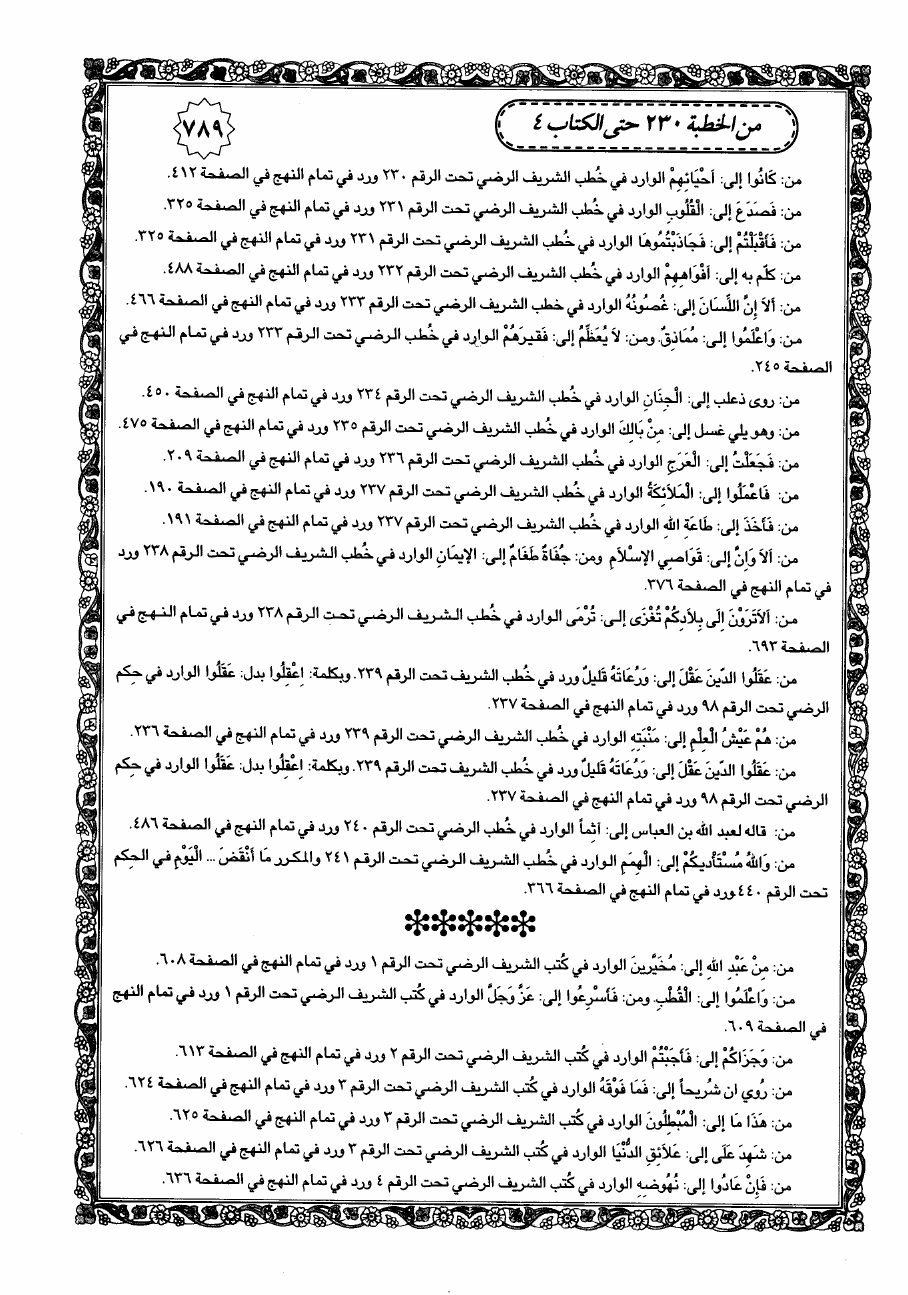 من الخطبة ٢٣٠ حتى الكتاب ٤
٧٨٩
من: كَانُوا إلى: أَحْيَائِهِمْ الوارد في خُطب الشريف الرضي تحت الرقم ٢٣٠ ورد في تمام النهج في الصفحة ٤١٢.
من: فَصَدَعَ إلى: الْقُلُوبِ الوارد في خُطب الشريف الرضي تحت الرقم ٢٣١ ورد في تمام النهج في الصفحة ٣٢٥.
من: فَأَقْبَلْتُمْ إلى: فَجَاذَبْتُمُوهَا الوارد في خُطب الشريف الرضي تحت الرقم ٢٣١ ورد في تمام النهج في الصفحة ٣٢٥.
من: كلّم به إلى: أَفْوَاهِهِمْ الوارد في خُطب الشريف الرضي تحت الرقم ٢٣٢ ورد في تمام النهج في الصفحة ٤٨٨.
من: أَلاَ إِنَّ اللِّسَانَ إلى: غُصُونُهُ الوارد في خطب الشريف الرضي تحت الرقم ٢٣٣ ورد في تمام النهج في الصفحة ٤٦٦.
من: وَاعْلَمُوا إلى: مُمَاذِقٌ. ومن: لاَ يُعَظِّمُ إلى: فَقِيرَهُمْ الوارد في خُطب الرضي تحت الرقم ٢٣٣ ورد في تمام النهج في
الصفحة ٢٤٥.
من: روى ذعلب إلى: الْجِنَانِ الوارد في خُطب الشريف الرضي تحت الرقم ٢٣٤ ورد في تمام النهج في الصفحة ٤٥٠.
من: وهو يلي غسل إلى: مِنْ بَالِكَ الوارد في خُطب الشريف الرضي تحت الرقم ٢٣٥ ورد في تمام النهج في الصفحة ٤٧٥.
من: فَجَعَلْتُ إلى: الْعَرَجِ الوارد في خُطب الشريف الرضي تحت الرقم ٢٣٦ ورد في تمام النهج في الصفحة ٢٠٩.
من: فَاعْمَلُوا إلى: الْمَلاَئِكَةُ الوارد في خُطب الشريف الرضي تحت الرقم ٢٣٧ ورد في تمام النهج في الصفحة ١٩٠.
من: فَأَخَذَ إلى: طَاعَةِ اللهِ الوارد في خُطب الشريف الرضي تحت الرقم ٢٣٧ ورد في تمام النهج في الصفحة ١٩١.
من: أَلاَ وَإِنَّ إلى: قَوَاصِي الإِسْلاَمِ ومن: جُفَاةٌ طَغَامٌ إلى: الإِيمَانِ الوارد في خُطب الشريف الرضي تحت الرقم ٢٣٨ ورد
في تمام النهج في الصفحة ٣٧٦.
من: أَلاَتَرَوْنَ إِلَى بِلاَدِكُمْ تُغْزَى إلى: تُرْمَى الوارد في خُطب الشريف الرضي تحت الرقم ٢٣٨ ورد في تمام النهج في
الصفحة ٦٩٣.
من: عَقَلُوا الدّينَ عَقْلَ إلى: وَرُعَاتَهُ قَليلٌ ورد في خُطب الشريف تحت الرقم ٢٣٩. وبكلمة: اِعْقِلُوا بدل: عَقَلُوا الوارد في حِكم
الرضي تحت الرقم ٩٨ ورد في تمام النهج في الصفحة ٢٣٧.
من: هُمْ عَيْشُ الْعِلْمِ إلى: مَنْبَتِهِ الوارد في خُطب الشريف الرضي تحت الرقم ٢٣٩ ورد في تمام النهج في الصفحة ٢٣٦.
من: عَقَلُوا الدّينَ عَقْلَ إلى: وَرُعَاتَهُ قَليلٌ ورد في خُطب الشريف تحت الرقم ٢٣٩. وبكلمة: اِعْقِلُوا بدل: عَقَلُوا الوارد في حِكم
الرضي تحت الرقم ٩٨ ورد في تمام النهج في الصفحة ٢٣٧.
من: قاله لعبد الله بن العباس إلى: آثماً الوارد في خُطب الرضي تحت الرقم ٢٤٠ ورد في تمام النهج في الصفحة ٤٨٦.
من: وَاللهُ مُسْتَأْدِيكُمْ إلى: الْهِمَمِ الوارد في خُطب الشريف الرضي تحت الرقم ٢٤١ والمكرر مَا أَنْقَضَ ... الْيَوْمِ في الحِكم
تحت الرقم ٤٤٠ ورد في تمام النهج في الصفحة ٣٦٦.
من: مِنْ عَبْدِ اللهِ إلى: مُخَيَّرِينَ الوارد في كُتب الشريف الرضي تحت الرقم ١ ورد في تمام النهج في الصفحة ٦٠٨.
من: وَاعْلَمُوا إلى: الْقُطْبِ. ومن: فَأَسْرِعُوا إلى: عَزَّ وَجَلَّ الوارد في كُتب الشريف الرضي تحت الرقم ١ ورد في تمام النهج
في الصفحة ٦٠٩.
من: وَجَزَاكُمْ إلى: فَأَجَبْتُمْ الوارد في كُتب الشريف الرضي تحت الرقم ٢ ورد في تمام النهج في الصفحة ٦١٣.
من: رُوي ان شُريحاً إلى: فَمَا فَوْقَهُ الوارد في كُتب الشريف الرضي تحت الرقم ٣ ورد في تمام النهج في الصفحة ٦٢٤.
من: هَذَا مَا إلى: الْمُبْطِلُونَ الوارد في كُتب الشريف الرضي تحت الرقم ٣ ورد في تمام النهج في الصفحة ٦٢٥.
من: شَهِدَ عَلَى إلى: عَلاَئِقِ الدُّنْيَا الوارد في كُتب الشريف الرضي تحت الرقم ٣ ورد في تمام النهج في الصفحة ٦٢٦.
من: فَإِنْ عَادُوا إلى: نُهُوضِهِ الوارد في كُتب الشريف الرضي تحت الرقم ٤ ورد في تمام النهج في الصفحة ٦٣٦.